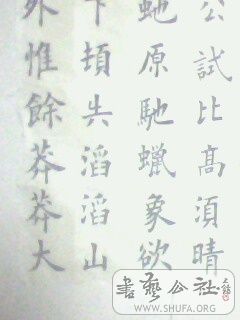 公試比高須晴
虵原馳蠟象欲
下頓失滔滔山
外惟餘莽莽大
書藝公社
WWW.SHUFA.ORG